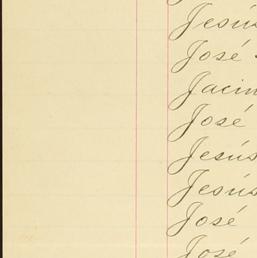 Jesús
José
Jacin
José
Jesús
Jesús
José
José